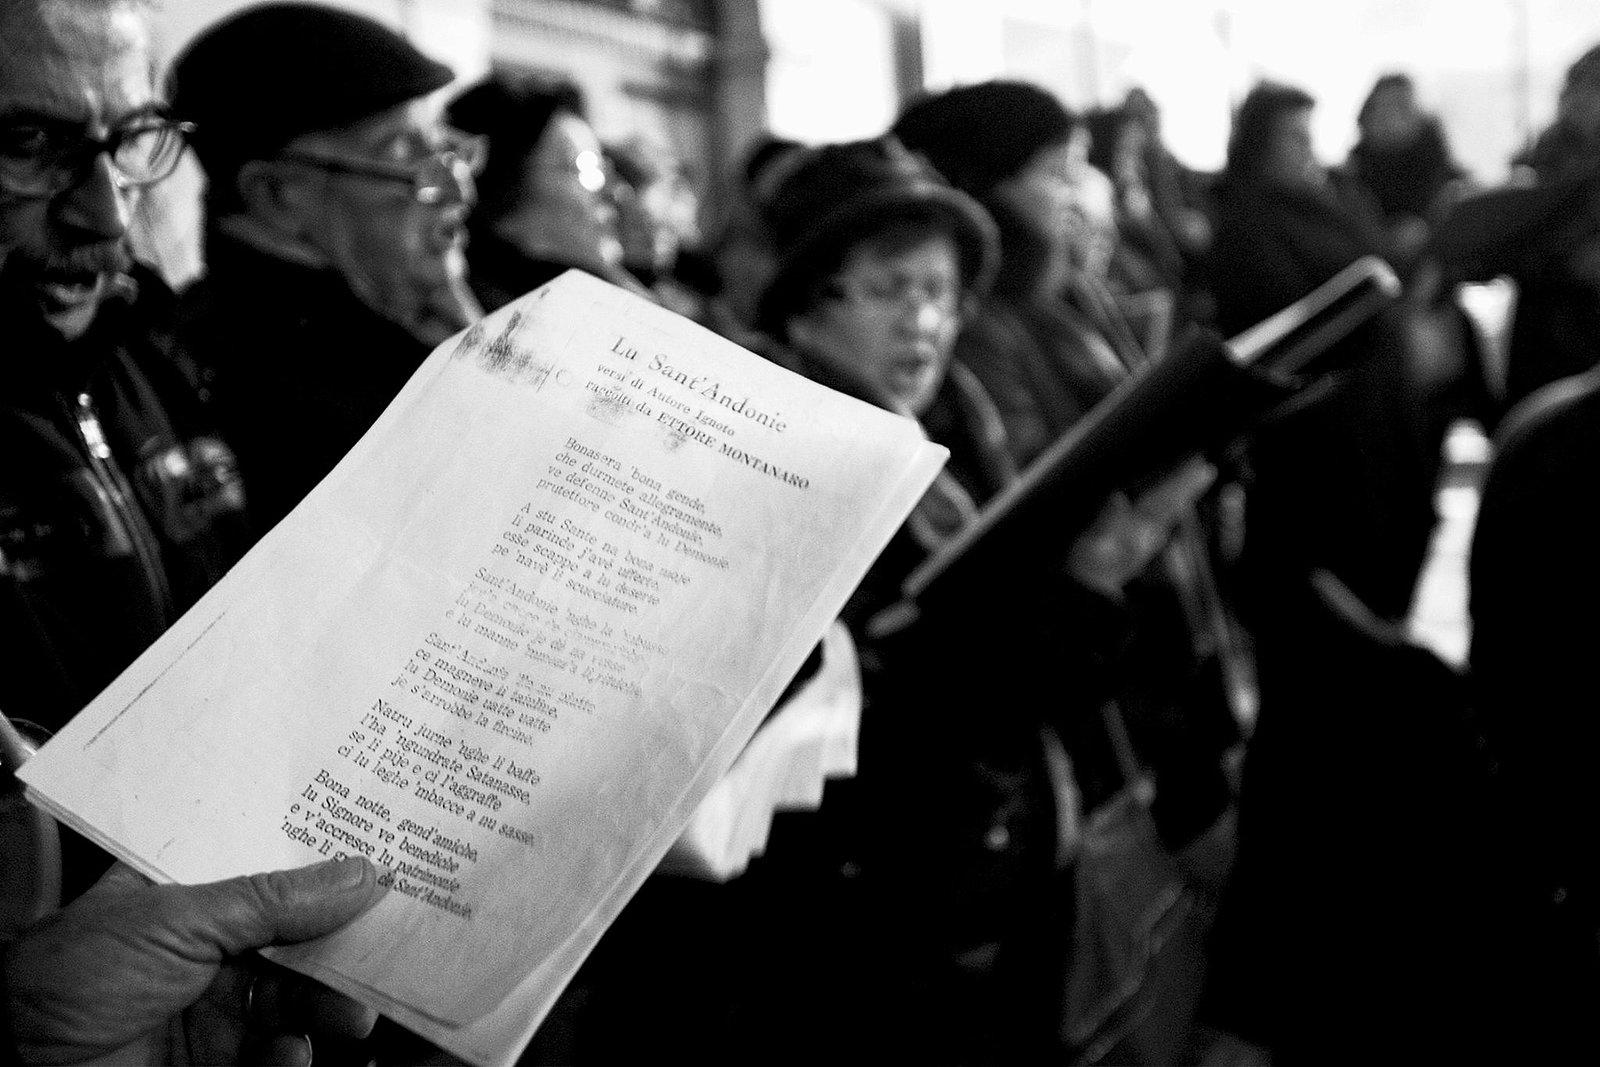 Lu Sant'Andonie
versi di Autore Ignoto
raccolti da ETTORE MONTANARO
Bonasera 'bona gende,
che durmete allegramente,
ve defenne Sant'Andonie,
prutettore condr'a lu Demonie.
A stu Sante na bona moje
li parinde j'avé offerte,
esse scappe a lu deserte
pe 'navè li scucciature.
Sant'Andonie 'nghe la
lu Demonie je dà na
e lu manne
Sant'Andonie
ce magneve li tajuline,
lu Demonie uatte uatte
je s'arrobbe la fircine.
Natru jurne 'nghe li baffe
l'ha 'ngundrate Satanasse,
se li pije e ci l'aggraffe
ci lu leghe 'mbacce a nu sasse.
Bona notte, gend'amiche,
lu Signore ve benediche
e v'accresce lu patrimonie
'nghe li de Sant'Andonie.